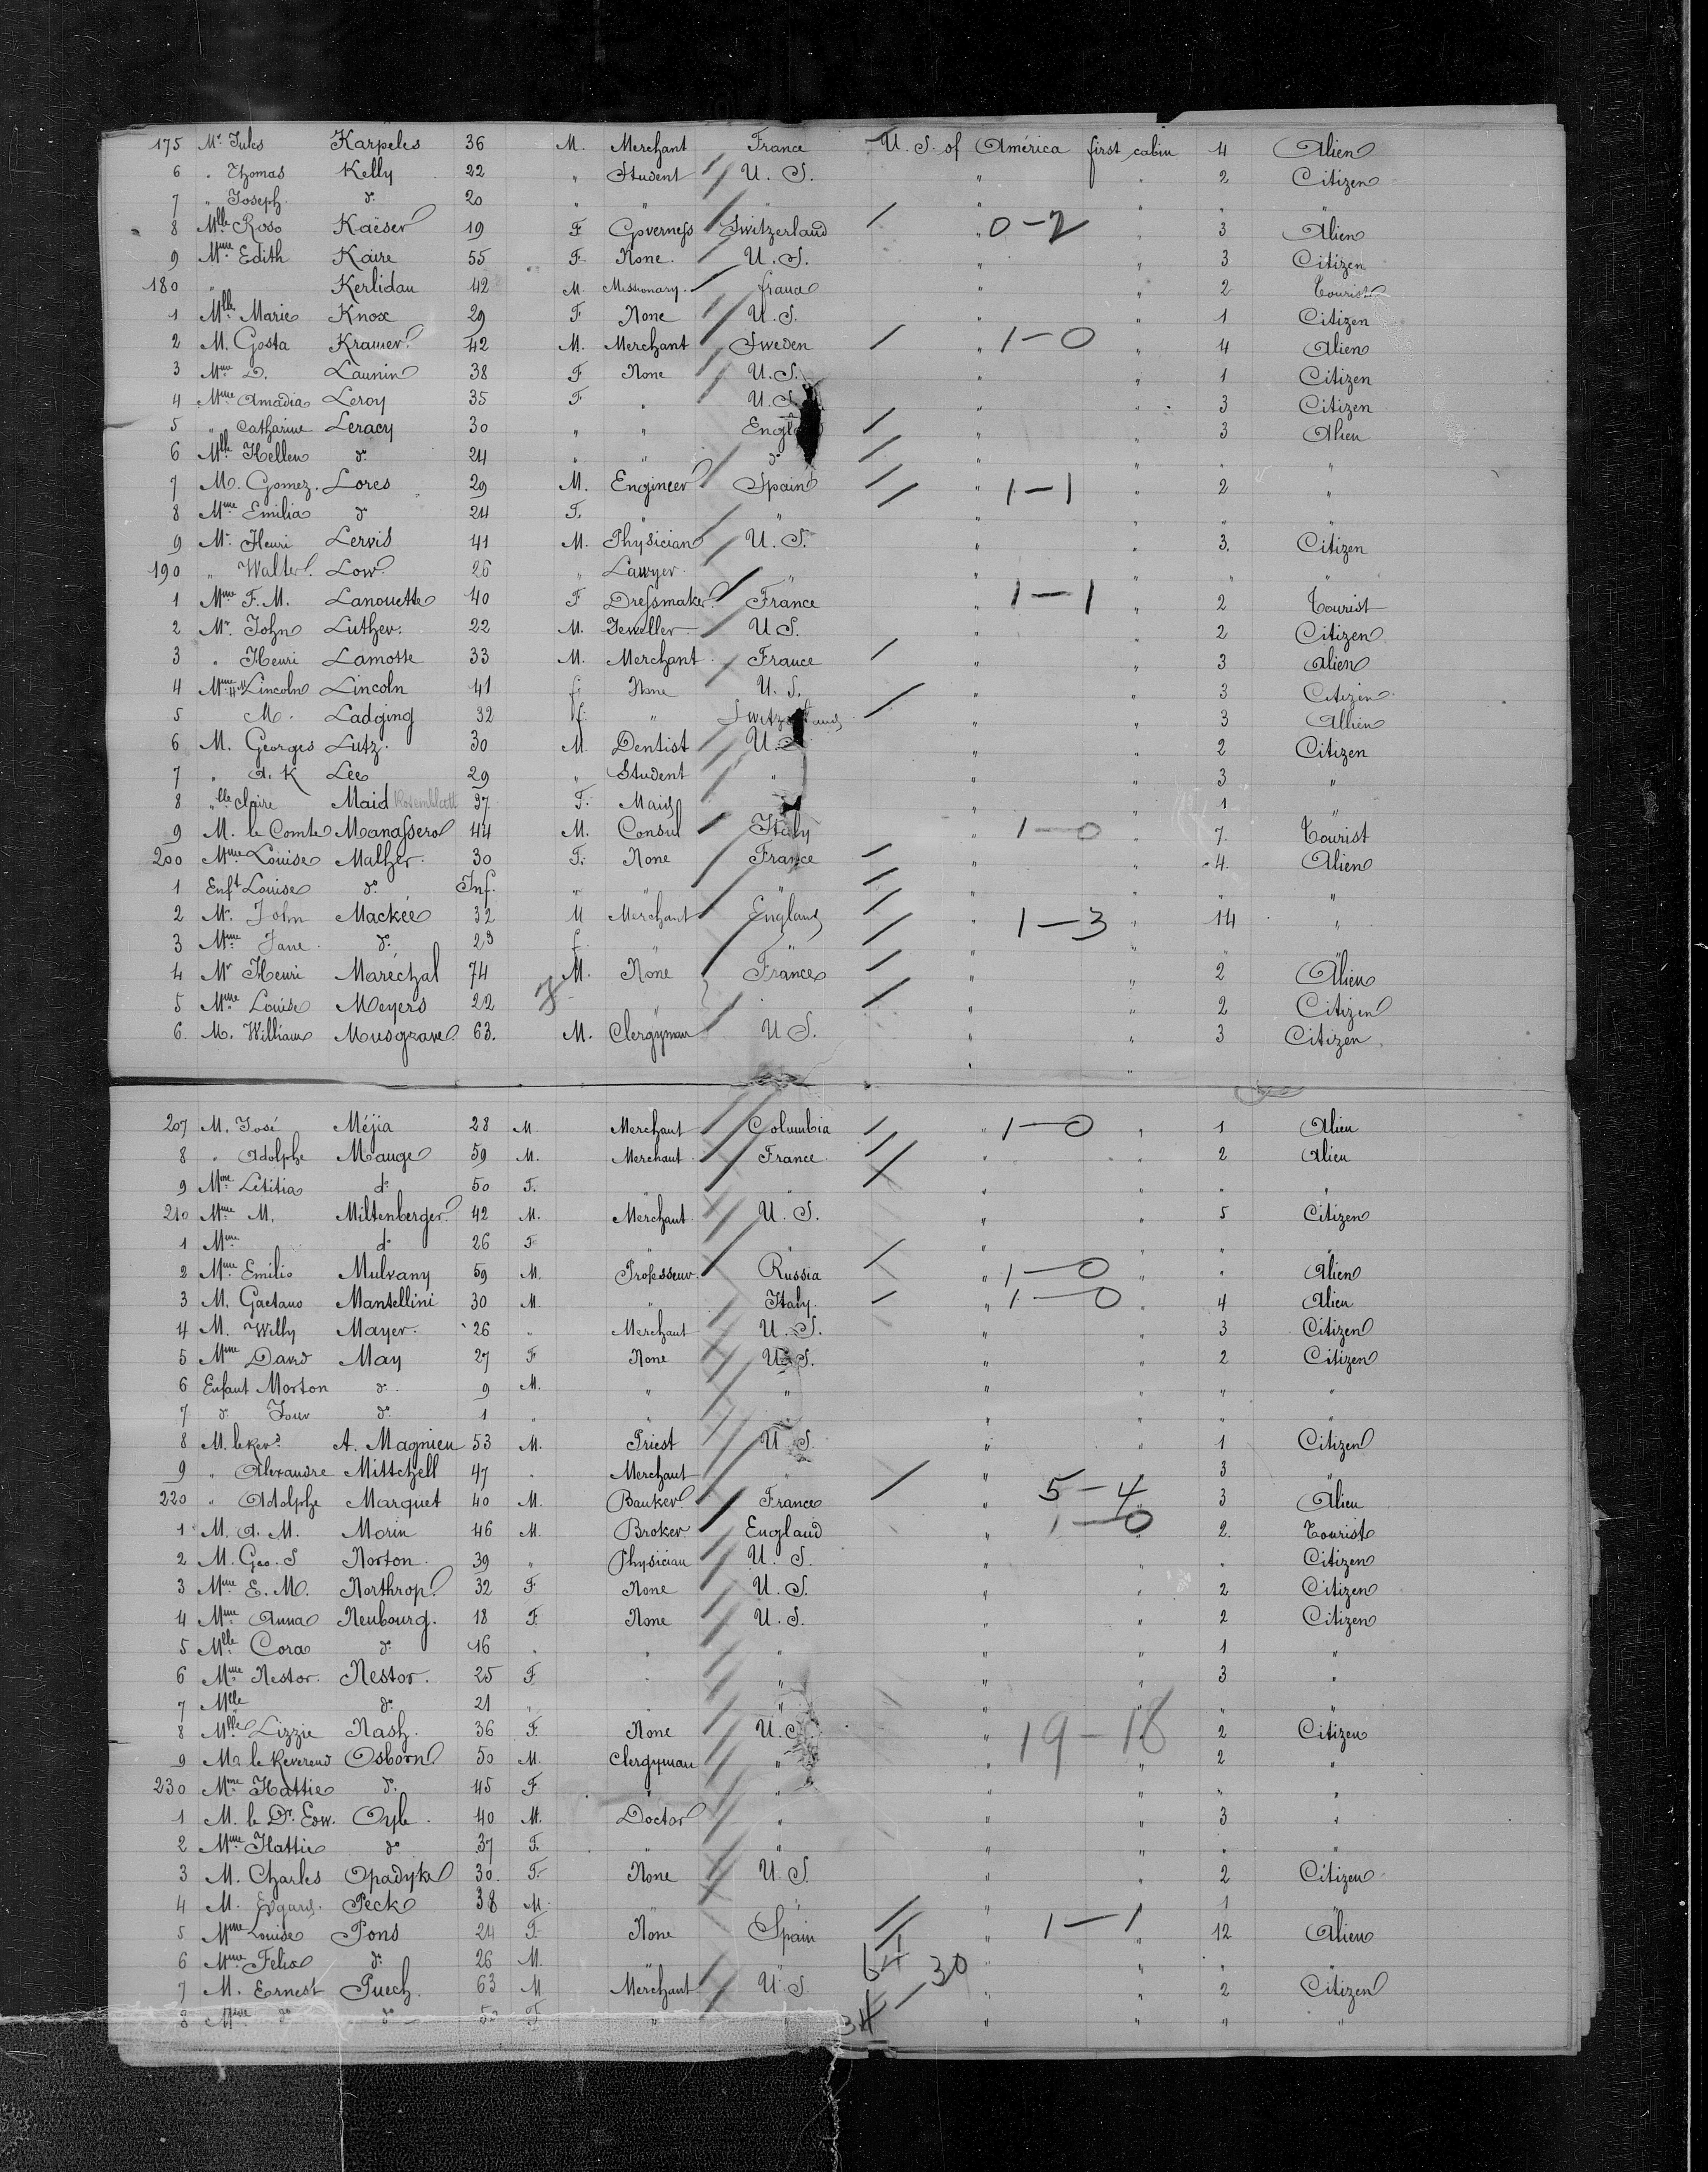 175 Mr Jules Karpeles 36 M. Merchant France U. S. of América first cabin 4 Alien
6 " Thomas Kelly 22 " Student U. S. " " 2 Citizen
7 " Joseph do 20 " " " " " " "
8 Mlle Roso Kaëser 19 F Governess Switzerland " 0-2 " 3 Alien
9 Mme Edith Kaire 55 F. None. U. S. " " 3 Citizen
180 " Kerlidau 42 M. Missionary. france " " 2 Tourist
1 Mlle Marie Knox 29 F None U. S. " " 1 Citizen
2 M. Gosta Kramer. 42 M. Merchant Sweden " 1-0 " 4 Alien
3 Mme D. Launin 38 F None U. S. " " 1 Citizen
4 Mme Amadia Leroy 35 F " U. S. " " 3 Citizen
5 " Catharine Leracy 30 " " Engla " " 3 Alien
6 Mlle Hellen do 24 " " do " " " "
7 M. Gomez. Lores 29 M. Engineer Spain " 1-1 " 2 "
8 Mme Emilia do 24 F. " " " " " "
9 Mr. Henri Lervis 41 M. Physician U. S. " " 3. Citizen
190 " Walter. Low 26 " Lawyer. " " " " "
1 Mme F. M. Lanouette 40 F Dressmaker. France " 1-1 " 2 Tourist
2 Mr. John Luther. 22 M. Jeweller U S. " " 2 Citizen
3 " Henri Lamotte 33 M. Merchant. France " " 3 Alien
4 Mme H. M Lincoln Lincoln 41 f. None U. S. " " 3 Citizen
5 M. Ladging 32 f. " Switz and " " 3 Allien
6 M. Georges Lutz. 30 M. Dentist U. S " " 2 Citizen
7 " A. K Lee 29 " Student " " " 3 "
8 "lle Claire Maid Rosemblatt 37 F. Maid " " " 1 "
9 M. le Comte Manassero 44 M. Consul Italy " 1-0 " 7. Tourist
200 Mme Louise Malher. 30 F. None France " " 4. Alien
1 Enft Louise do. Inf. " " " " " " "
2 Mr. John Mackée 32 M Merchant England " 1-3 " 14 "
3 Mme Jane. do. 23 f. " " " " " "
4 Mr Henri Maréchal 74 M. None France " " 2 Alien
5 Mme Louise Meyers 22 " " " " 2 Citizen
6. M. William Musgrave 63. M. Clergyman U S. " " 3 Citizen
207 M. José Méjia 28 M Merchant Columbia " 1-0 " 1 Alien
8 " Adolphe Mauge 59 M. Merchant France. " " 2 Alien
9 Mme Létitia do 50 F. " " " " " "
210 Mme M. Miltenberger. 42 M. Merchant U. S. " " 5 Citizen
1 Mme do 26 F " " " " " "
2 Mme Emilio Mulvany 59 M. Professeur. Russia " 1-0 " " Alien
3 M. Gaetano Mantellini 30 M. " Italy. " 1-0 " 4 Alien
4 M. Willy Mayer. 26 " Merchant U. S. " " 3 Citizen
5 Mme David May 27 F None U. S. " " 2 Citizen
6 Enfant Morton do. 9 M. " " " " " "
7 do. do. 1 " " " " " " "
8 M. le Revd. A. Magnien 53 M. Priest U S. " " 1 Citizen
9 " Alexandre Mittchell 47 " Merchant " " " 3 "
220 " Adolphe Marquet 40 M. Banker France " 5-4 " 3 Alien
1 M. A. M. Morin 46 M. Broker England " 1-0 " 2. Tourist
2 M. Geo. S Norton. 39 " Physician U. S. " " " Citizen
3 Mme E. M. Northrop 32 F None U. S. " " 2 Citizen
4 Mme Anna Neubourg. 18 F. None U. S. " " 2 Citizen
5 Mlle Cora do. 16 " " " " " 1 "
6 Mme Nestor. Nestor. 25 F. " " " " 3 "
7 Mlle do. 21 " " " " " " "
8 Mlle Lizzie Nash. 36 F. None U. S. " 19-18 " 2 Citizen
9 M. le Reverend Osborn 50 M. Clergyman " " " 2 "
230 Mme Hattie do. 45 F. " " " " " "
1 M. le Dr. Edw. Oyle. 40 M. Doctor " " " 3 "
2 Mme Hattie do 37 F. " " " " " "
3 M. Charles Opadyke 30. F. None U. S. " " 2 Citizen
4 M. Edgard. Peck 38 M. " " " " 1 "
5 Mme Louise Pons 24 F. None Spain " 1-1 " 12. Alien
6 Mme Felix do. 26 M. " " 64 " " " "
7 M. Ernest Puech. 63 M Merchant U. S. 34-30 " " 2 Citizen
8 Mme do do 52 F. " " " " " "